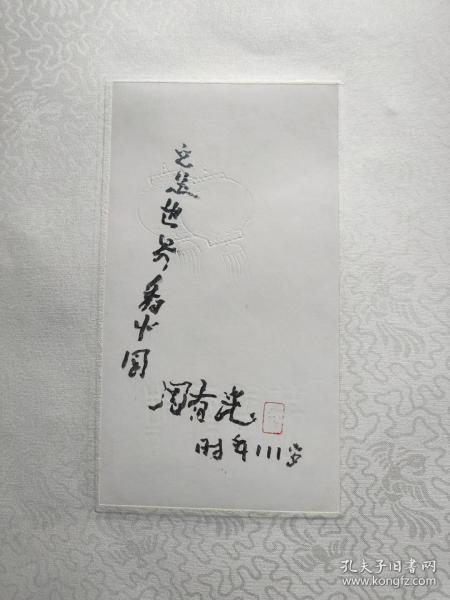 立足世界看中国
周有光
时年111岁
孔夫子旧书网
www.kongfz.com